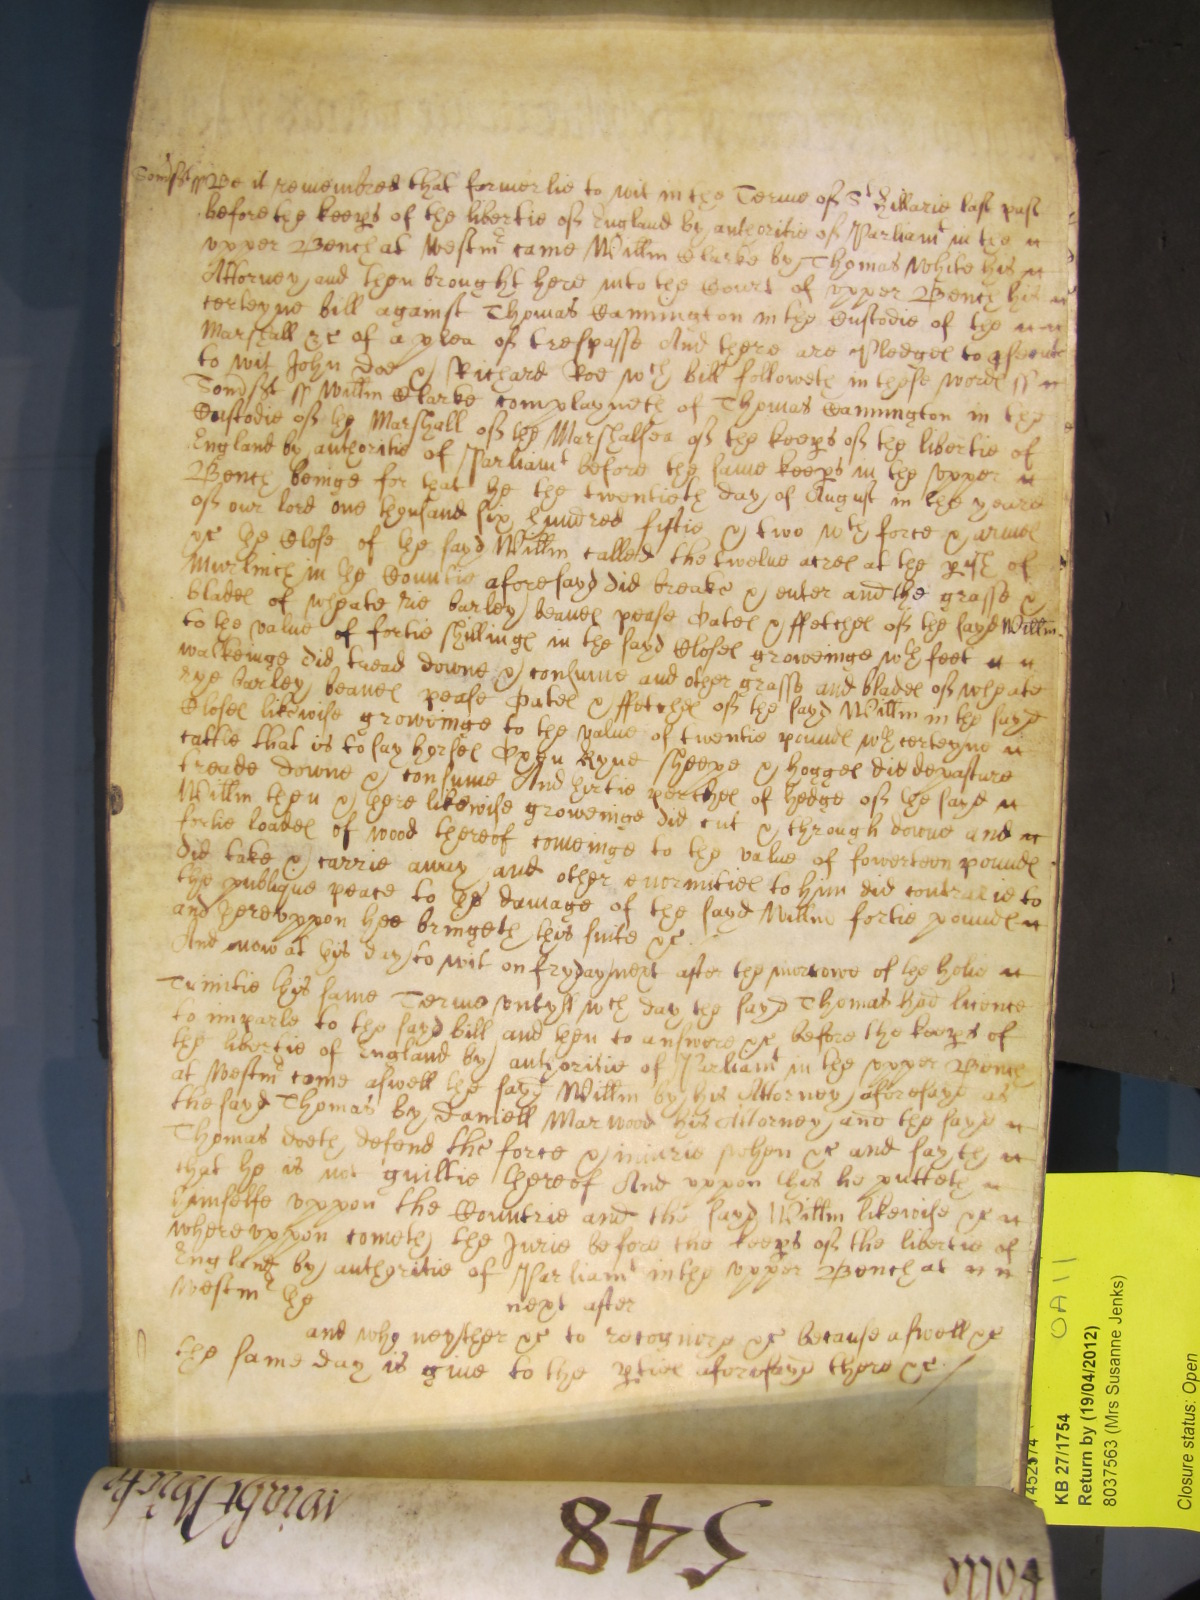 Somst ss Be it remembred that formerlie to wit in the Terme of St Hillarie last past
before the keeps of the libertie of England by authoritie of Parliamt in the
upper Bench at Westmr came Willm Clarke by Thomas White his
Attorney and then brought here into the Court of upper Bench his
certeyne bill against Thomas Cannington in the Custodie of the
Marshall &c of a plea of trespasse And there are Pledges to psecute
to wit John Doe & Richard Roe wch bill followeth in these words ss
Somst ss Willm Clarke complayneth of Thomas Cannington in the
Custodie of the Marshall of the Marshalsea of the keeps of the libertie of
England by authoritie of Parliamt before the same keeps in the upper
Bench beinge for that he the twentieth day of August in the yeare
of our lord one thousand six hundred fiftie & two wth force & armes
&c the Close of the sayd Willm called the twelve acres at the pish of
Murlinch in the Countie aforesayd did breake & enter and the grasse &
blades of wheate rie barley beanes pease Oates & ffetches of the sayd Willm
to the value of fortie shillings in the sayd Closes groweinge wth feet
walkeinge did tread downe & consume and other grasse and blades of wheate
rye barley beanes pease Oates & ffetches of the sayd Willm in the sayd
Closes likewise groweinge to the value of twentie pounds wth certeyne
cattle that is to say horses Oxen Kyne sheepe & hogges did depasture
treade downe & consume And thirtie perches of hedge of the sayd
Willm then & there likewise groweinge did cut & through downe and
fortie loades of wood thereof comeinge to the value of fowerteen pounds
did take & carrie away and other enormities to him did contrarie to
the publique peace to the damage of the sayd Willm fortie pounds
and thereuppon hee bringeth this suite &c
And now at this day to wit on fryday next after the morrowe of the holie
Trinitie this same Terme untill wch day the sayd Thomas had licence
to imparle to the sayd bill and then to answere &c before the keeps of
the libertie of England by authoritie of Parliamt in the upper Bench
at Westmr came aswell the sayd Willm by his Attorney aforesayd as
the sayd Thomas by Daniell Marwood his Attorney and the sayd
Thomas doeth defend the force & iniurie when &c and sayth
that he is not guiltie thereof And uppon this he putteth
himselfe uppon the Countrie and the sayd Willm likewise &c
whereuppon cometh the Jurie before the keeps of the libertie of
England by authoritie of Parliamt in the upper Bench at
Westmr the next after
and who neyther &c to recognize &c because aswell &c
the same day is give to the pties aforesayd there &c
548
Rolle
KB 27/1754
Return by (19/04/2012)
8037563 (Mrs Susanne Jenks)
Closure status: Open